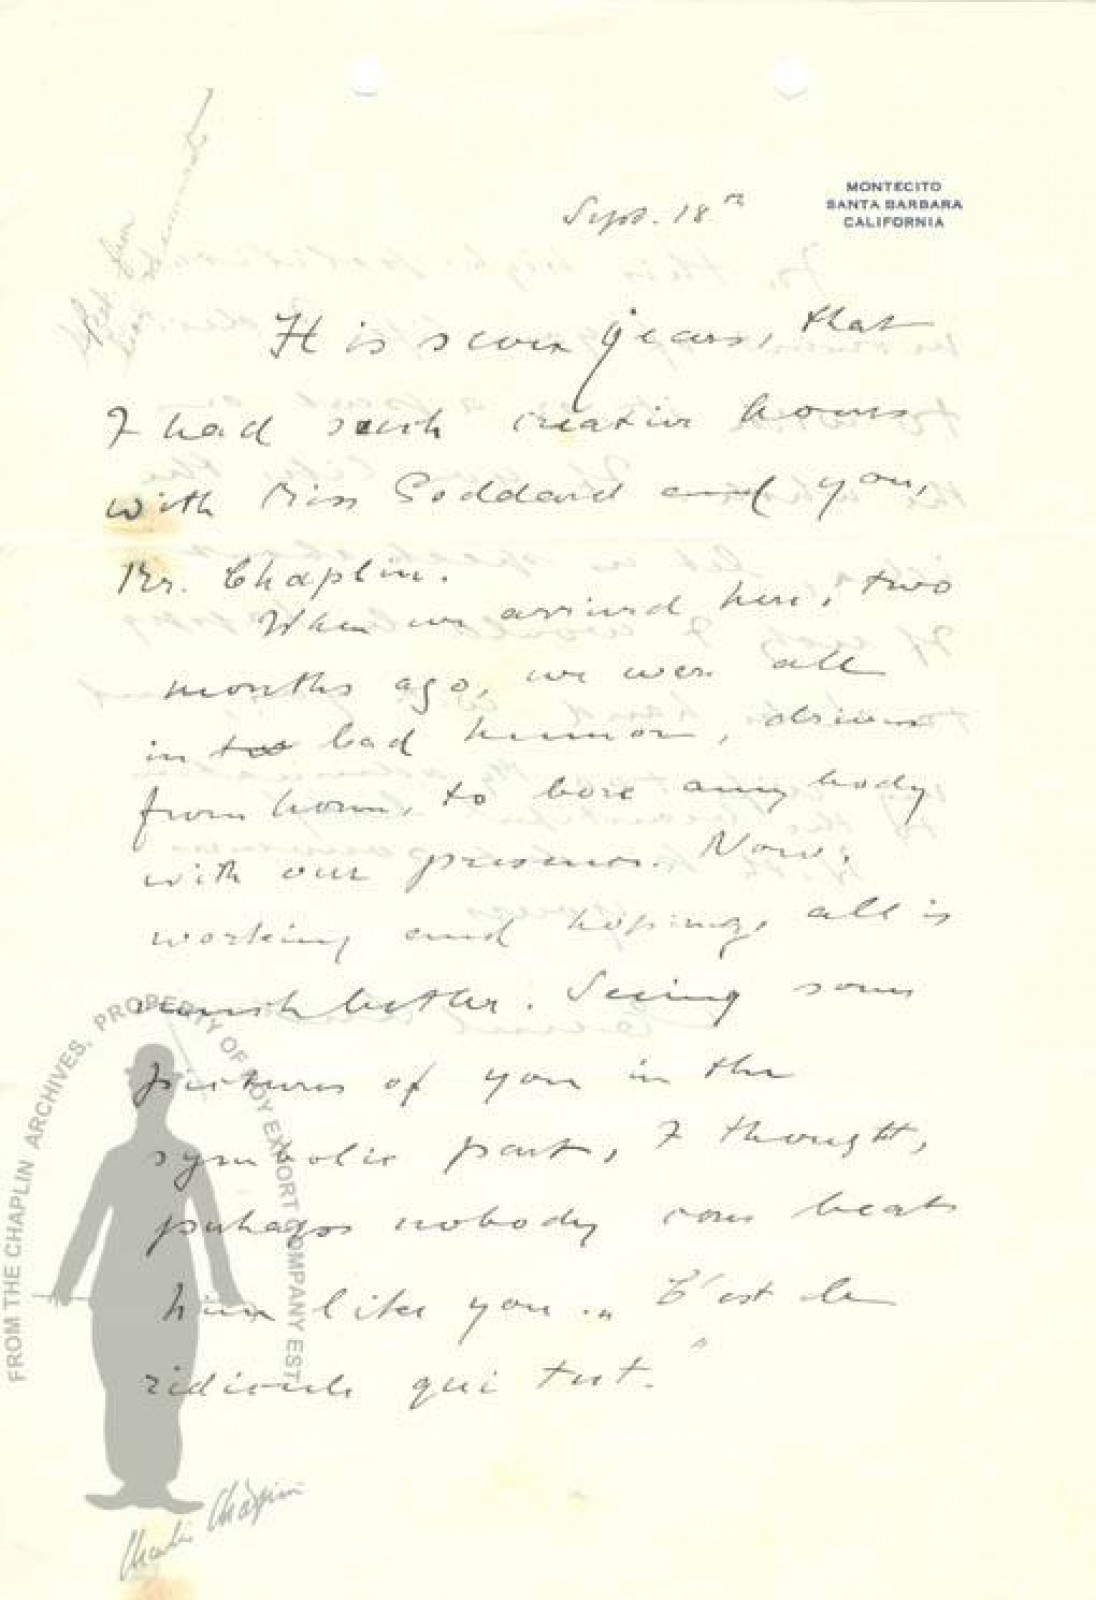 MONTECITO
SANTA BARBARA
CALIFORNIA
Sept. 18th
It is seven years, that
I had such creative hours
with Miss Goddard and you,
Mr. Chaplin.
When we arrived here, two
months ago, we were all
in too bad humor, driven
from home, to bore any body
with our presence. Now,
working and hoping, all is
much better. Seeing some
pictures of you in the
symbolic part, I thought,
perhaps nobody can beat
him like you. „ C'est le
ridicule qui tut."
FROM THE CHAPLIN ARCHIVES, PROPERTY OF ROY EXPORT COMPANY EST.
Charlie Chaplin